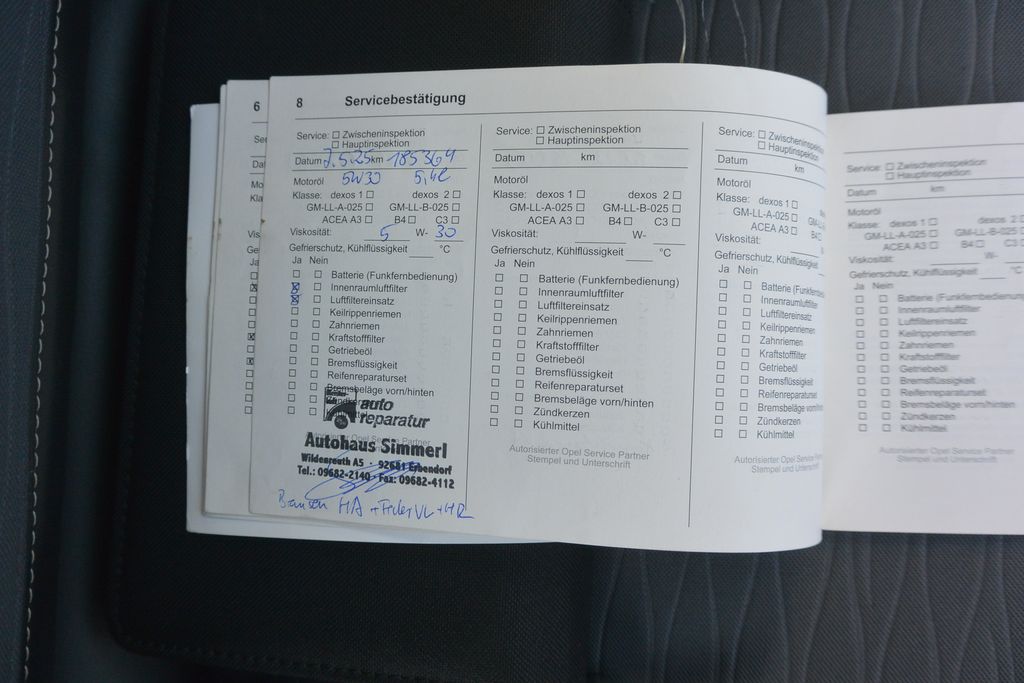 6
8 Servicebestätigung
Service: Zwischeninspektion
Hauptinspektion
Datum 7.5.25 km 185364
Motoröl 5W30 5,4l
Klasse: dexos 1 dexos 2
GM-LL-A-025 GM-LL-B-025
ACEA A3 B4 C3
Viskosität: 5 W- 30
Gefrierschutz, Kühlflüssigkeit °C
Ja Nein
Batterie (Funkfernbedienung)
Innenraumluftfilter
Luftfiltereinsatz
Keilrippenriemen
Zahnriemen
Kraftstofffilter
Getriebeöl
Bremsflüssigkeit
Reifenreparaturset
Bremsbeläge vorn/hinten
auto
reparatur
Autohaus Simmerl
Wildenreuth A5 · 92681 Erbendorf
Tel.: 09682-2140 · Fax: 09682-4112
Bremsen HA + Feder VL + HR
Service: Zwischeninspektion
Hauptinspektion
Datum km
Motoröl
Klasse: dexos 1 dexos 2
GM-LL-A-025 GM-LL-B-025
ACEA A3 B4 C3
Viskosität: W-
Gefrierschutz, Kühlflüssigkeit °C
Ja Nein
Batterie (Funkfernbedienung)
Innenraumluftfilter
Luftfiltereinsatz
Keilrippenriemen
Zahnriemen
Kraftstofffilter
Getriebeöl
Bremsflüssigkeit
Reifenreparaturset
Bremsbeläge vorn/hinten
Zündkerzen
Kühlmittel
Autorisierter Opel Service Partner
Stempel und Unterschrift
Service: Zwischeninspektion
Hauptinspektion
Datum km
Motoröl
Klasse: dexos 1
GM-LL-A-025
ACEA A3
Viskosität:
Gefrierschutz, Kühlflüssigkeit
Ja Nein
Batterie (Funkfernbe
Innenraumluftfilter
Luftfiltereinsatz
Keilrippenriemen
Zahnriemen
Kraftstofffilter
Getriebeöl
Bremsflüssigkeit
Reifenreparaturset
Bremsbeläge vorn/hinten
Zündkerzen
Kühlmittel
Autorisierter Opel Service
Stempel und Unterschrift
Service: Zwischeninspektion
Hauptinspektion
Datum km
Motoröl
Klasse: dexos 1 dexos 2
GM-LL-A-025 GM-LL-B-025
ACEA A3 B4 C3
Viskosität: W-
Gefrierschutz, Kühlflüssigkeit °C
Ja Nein
Batterie (Funkfernbedienun
Innenraumluftfilter
Luftfiltereinsatz
Keilrippenriemen
Zahnriemen
Kraftstofffilter
Getriebeöl
Bremsflüssigkeit
Reifenreparaturset
Bremsbeläge vorn/hinten
Zündkerzen
Kühlmittel
Autorisierter Opel Service Partner
Stempel und Unterschrift